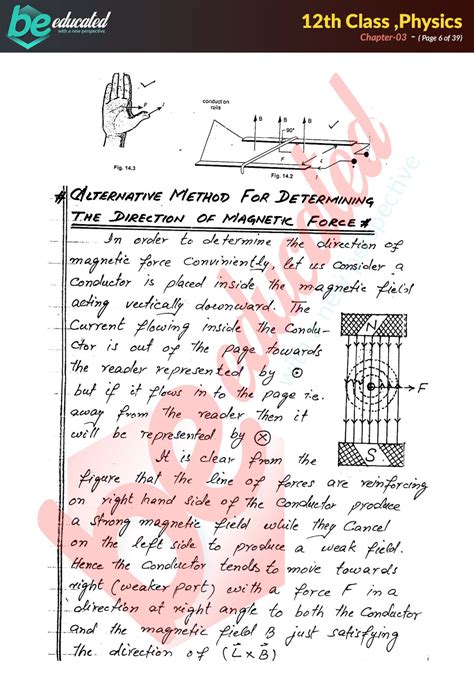 be educated
with a new perspective
12th Class ,Physics
Chapter-03 - ( Page 6 of 39)
conduction
rails
B B B
90°
F
F I
Fig. 14.3
Fig. 14.2
# Alternative Method For Determining
The Direction of Magnetic Force #
In order to determine the direction of
magnetic force Conviniently, let us Consider a
Conductor is placed inside the magnetic field
acting vertically downward. The
Current flowing inside the Condu-
ctor is out of the page towards
the reader represented by ⊙
but if it flows in to the page i.e.
away from the reader then it
will be represented by ⊗
N
F
S
It is clear from the
figure that the line of forces are reinforcing
on right hand side of the Conductor produce
a strong magnetic field while they Cancel
on the left side to produce a weak field.
Hence the Conductor tends to move towards
right (weaker port) with a force F in a
direction at right angle to both the Conductor
and the magnetic field B just satisfying
the direction of (L⃗ × B⃗)
be educated